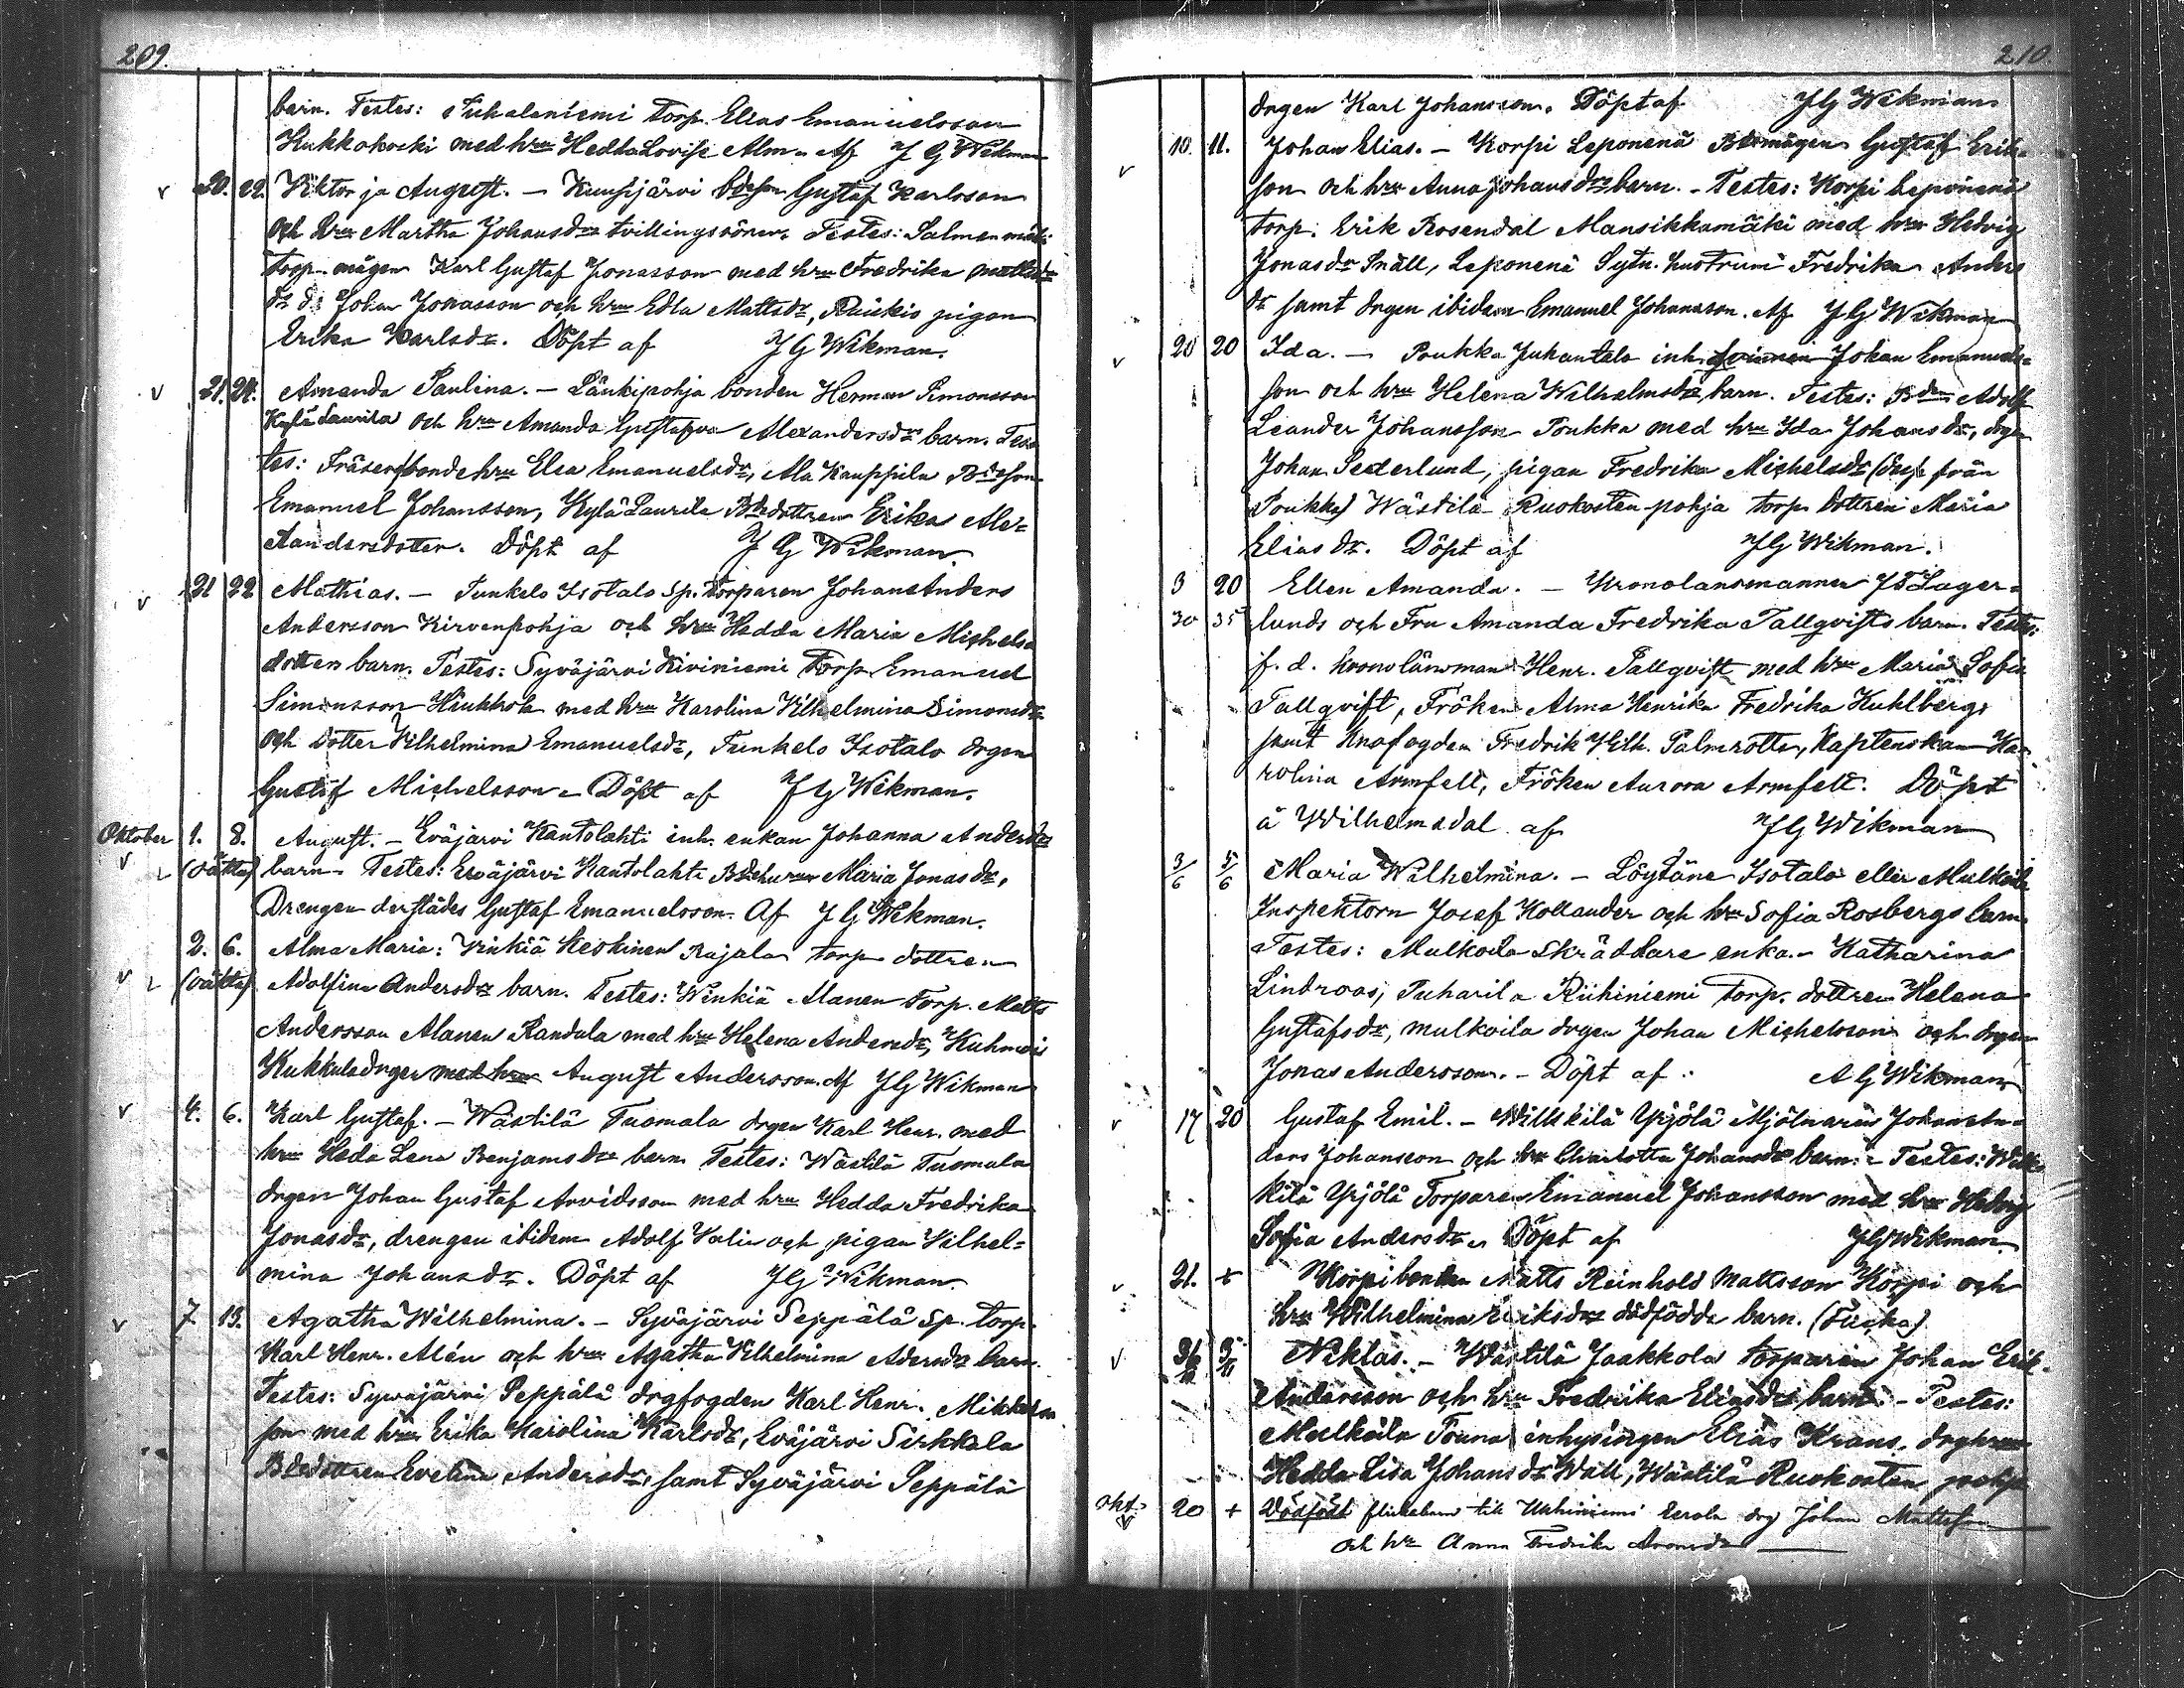 209.
barn. Testes: Tuhalaniemi Torp. Elias Emanuelsson
Hukkakoski med hru Hedda Lovisa Alm. Af J G Wikman
20. 22. Viktor ja August. — Kuusjärvi bdeson Gustaf Karlsson
och hru Martha Johansdrs tvillingssöner. Testes: Salmenmäki
torp. mågen Karl Gustaf Jonasson med hru Fredrika Mattsdr
Johan Jonasson och hru Edla Mattsdr, pigan
Erika Karlsdr. Döpt af J G Wikman.
21. 24. Amanda Paulina. — Länkipohja bonden Herman Simonsson
Kylä Laurila och hru Amanda Gustafva Alexandersdrs barn. Tes-
tes: bondehru Elsa Emanuelsdr, Ala Kauppila Bdeson
Emanuel Johansson, Kylä Laurila Bdedottren Erika Ale-
xandersdotter. Döpt af J G Wikman
21 22 Mathias. — Tunkelo Isotalo Sp. Torparen Johan Anders
Andersson Kirvenpohja och hru Hedda Maria Michels-
dotters barn. Testes: Syväjärvi Kiviniemi Torp. Emanuel
Simonsson med hru Karolina Vilhelmina Simonsdr
och Dotter Vilhelmina Emanuelsdr, Tunkelo Isotalo drgen
Gustaf Michelsson. Döpt af J G Wikman.
Oktober 1. 8. August. — Eväjärvi Kantolahti inh. enkan Johanna Andersdrs
(oäkta) barn. Testes: Eväjärvi Kantolahti Bdehrun Maria Jonasdr,
Drengen derstädes Gustaf Emanuelsson. Af J G Wikman.
2. 6. Alma Maria: Vinkiä Heskinen Rajala torp dottren
(oäkta) Adolfina Andersdrs barn. Testes: Winkiä Alanen Torp. Matts
Andersson Alanen Randala med hru Helena Andersdr, Kuhmois
Kukkula drgen med hru August Andersson. Af J G Wikman
4. 6. Karl Gustaf. — Wästilä Tuomala drgen Karl Henr. med
hru Heda Lena Benjamsdrs barn. Testes: Wästilä Tuomala
drgen Johan Gustaf Arvidsson med hru Hedda Fredrika
Jonasdr, drengen ibidem Adolf Valin och pigan Vilhel-
mina Johansdr. Döpt af J G Wikman
7. 13. Agatha Wilhelmina. — Syväjärvi Seppälä Sp. torp.
Karl Henr. Alén och hru Agatha Vilhelmina Adersdrs barn.
Testes: Syväjärvi Seppälä drgfogden Karl Henr. Mikkels-
son med hru Erika Karolina Karlsdr, Eväjärvi Sirkkala
Bdedottren Evelina Andersdr, samt Syväjärvi Seppälä
210.
drgen Karl Johansson. Döpt af J G Wikman
10. 11. Johan Elias. — Korpi Leponenä Bdemågen Gustaf Erik-
son och hru Anna Johansdrs barn. — Testes: Korpi Leponenä
torp. Erik Rosendal Mansikkamäki med hru Hedvig
Jonasdr Snäll, Leponenä Sytn. hustrun Fredrika Anders
dr samt drgen ibidem Emanuel Johansson. Af J G Wikman
20 20 Ida. — Poukka Juhantalo inh. Johan Emanuels-
son och hru Helena Wilhelmsdrs barn. Testes: Bden Adolf
Leander Johansson Poukka med hru Ida Johansdr, drgen
Johan Sederlund, pigan Fredrika Michelsdr från
Poukka) Wästilä Ruokosten pohja torp. Dottren Maria
Eliasdr. Döpt af J G Wikman.
3 20 Ellen Amanda. — Kronolänsmannen J F Lager-
30 35 lunds och Fru Amanda Fredrika Tallqvists barn. Testes:
f. d. kronolänsman Henr. Tallqvist med hru Maria Sofia
Tallqvist, Fröken Alma Henrika Fredrika Kuhlberg,
samt Krofogden Fredrik Vilh. Palmroth, Kaptenskan Ka-
rolina Armfelt, Fröken Aurora Armfelt. Döpt
å Wilhelmsdal af J G Wikman
3/6 5/6 Maria Wilhelmina. — Löytäne Isotalo eller Mulkoila
Inspektorn Josef Hollander och hru Sofia Rosbergs barn
Testes: Mulkoila Skräddare enka. — Katharina
Lindroos, Puharila Riihiniemi Torp. dottren Helena
Gustafsdr, Mulkoila drgen Johan Michelsson och drgen
Jonas Andersson. — Döpt af A G Wikman
17 20 Gustaf Emil. — Wilkkilä Yrjölä Mjölnaren Johan An-
ders Johansson och hru Charlotta Johansdrs barn. — Testes: Wilk-
kilä Yrjölä Torparen Emanuel Johansson med hru Hedvig
Sofia Andersdr. Döpt af J G Wikman.
21. + Korpi bonden Matts Reinhold Mattsson Korpi och
hru Wilhelmina Eriksdrs dödfödda barn. (Flicka)
Niklas. — Wästilä Jaakkola torparen Johan Erik
Andersson och hru Fredrika Eliasdrs barn. — Testes:
Mulkoila Touna inhysingen Elias Krans, drghrun
Hedda Lisa Johansdr Wall, Wästilä Ruokosten pohja
Okt. 20 + Dödfödt flickebarn till Uuhiniemi Eerola drg Johan Mattsson
och hr Anna Fredrika Aronsdr